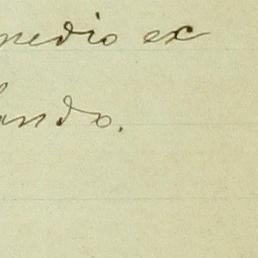 nedio ex
ando.